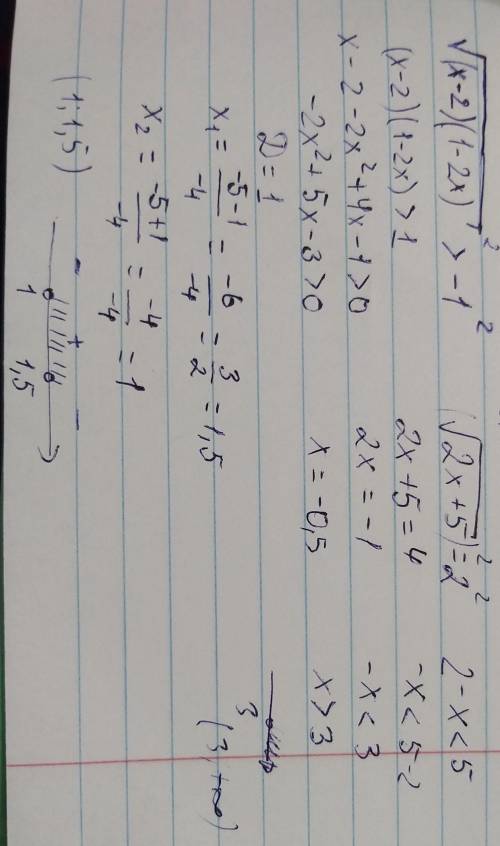 √(x-2)(1-2x)² > -1²
(x-2)(1-2x) > 1
x-2-2x²+4x-1>0
-2x²+5x-3>0
D=1
x₁ = -5-1/-4 = -6/-4 = 3/2 = 1,5
x₂ = -5+1/-4 = -4/-4 = 1
- + -
1 1,5
(1; 1,5)
(√2x+5)² = 2²
2x+5=4
2x=-1
x=-0,5
2-x<5
-x<5-2
-x<3
x>3
3
(3, +∞)